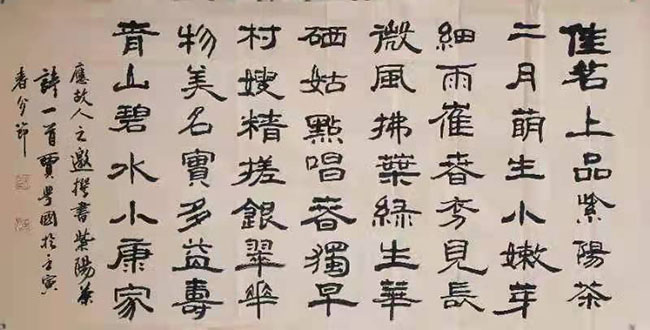 佳茗上品紫陽茶
二月萌生小嫩芽
細雨崔春見長
微風拂葉綠生華
硒姑點唱春獨早
村嫂精搓銀翠伞
物美名實多益壽
青山碧水小康家
應故人之邀撰書紫陽茶
詩一首賈國於壬寅
春分節